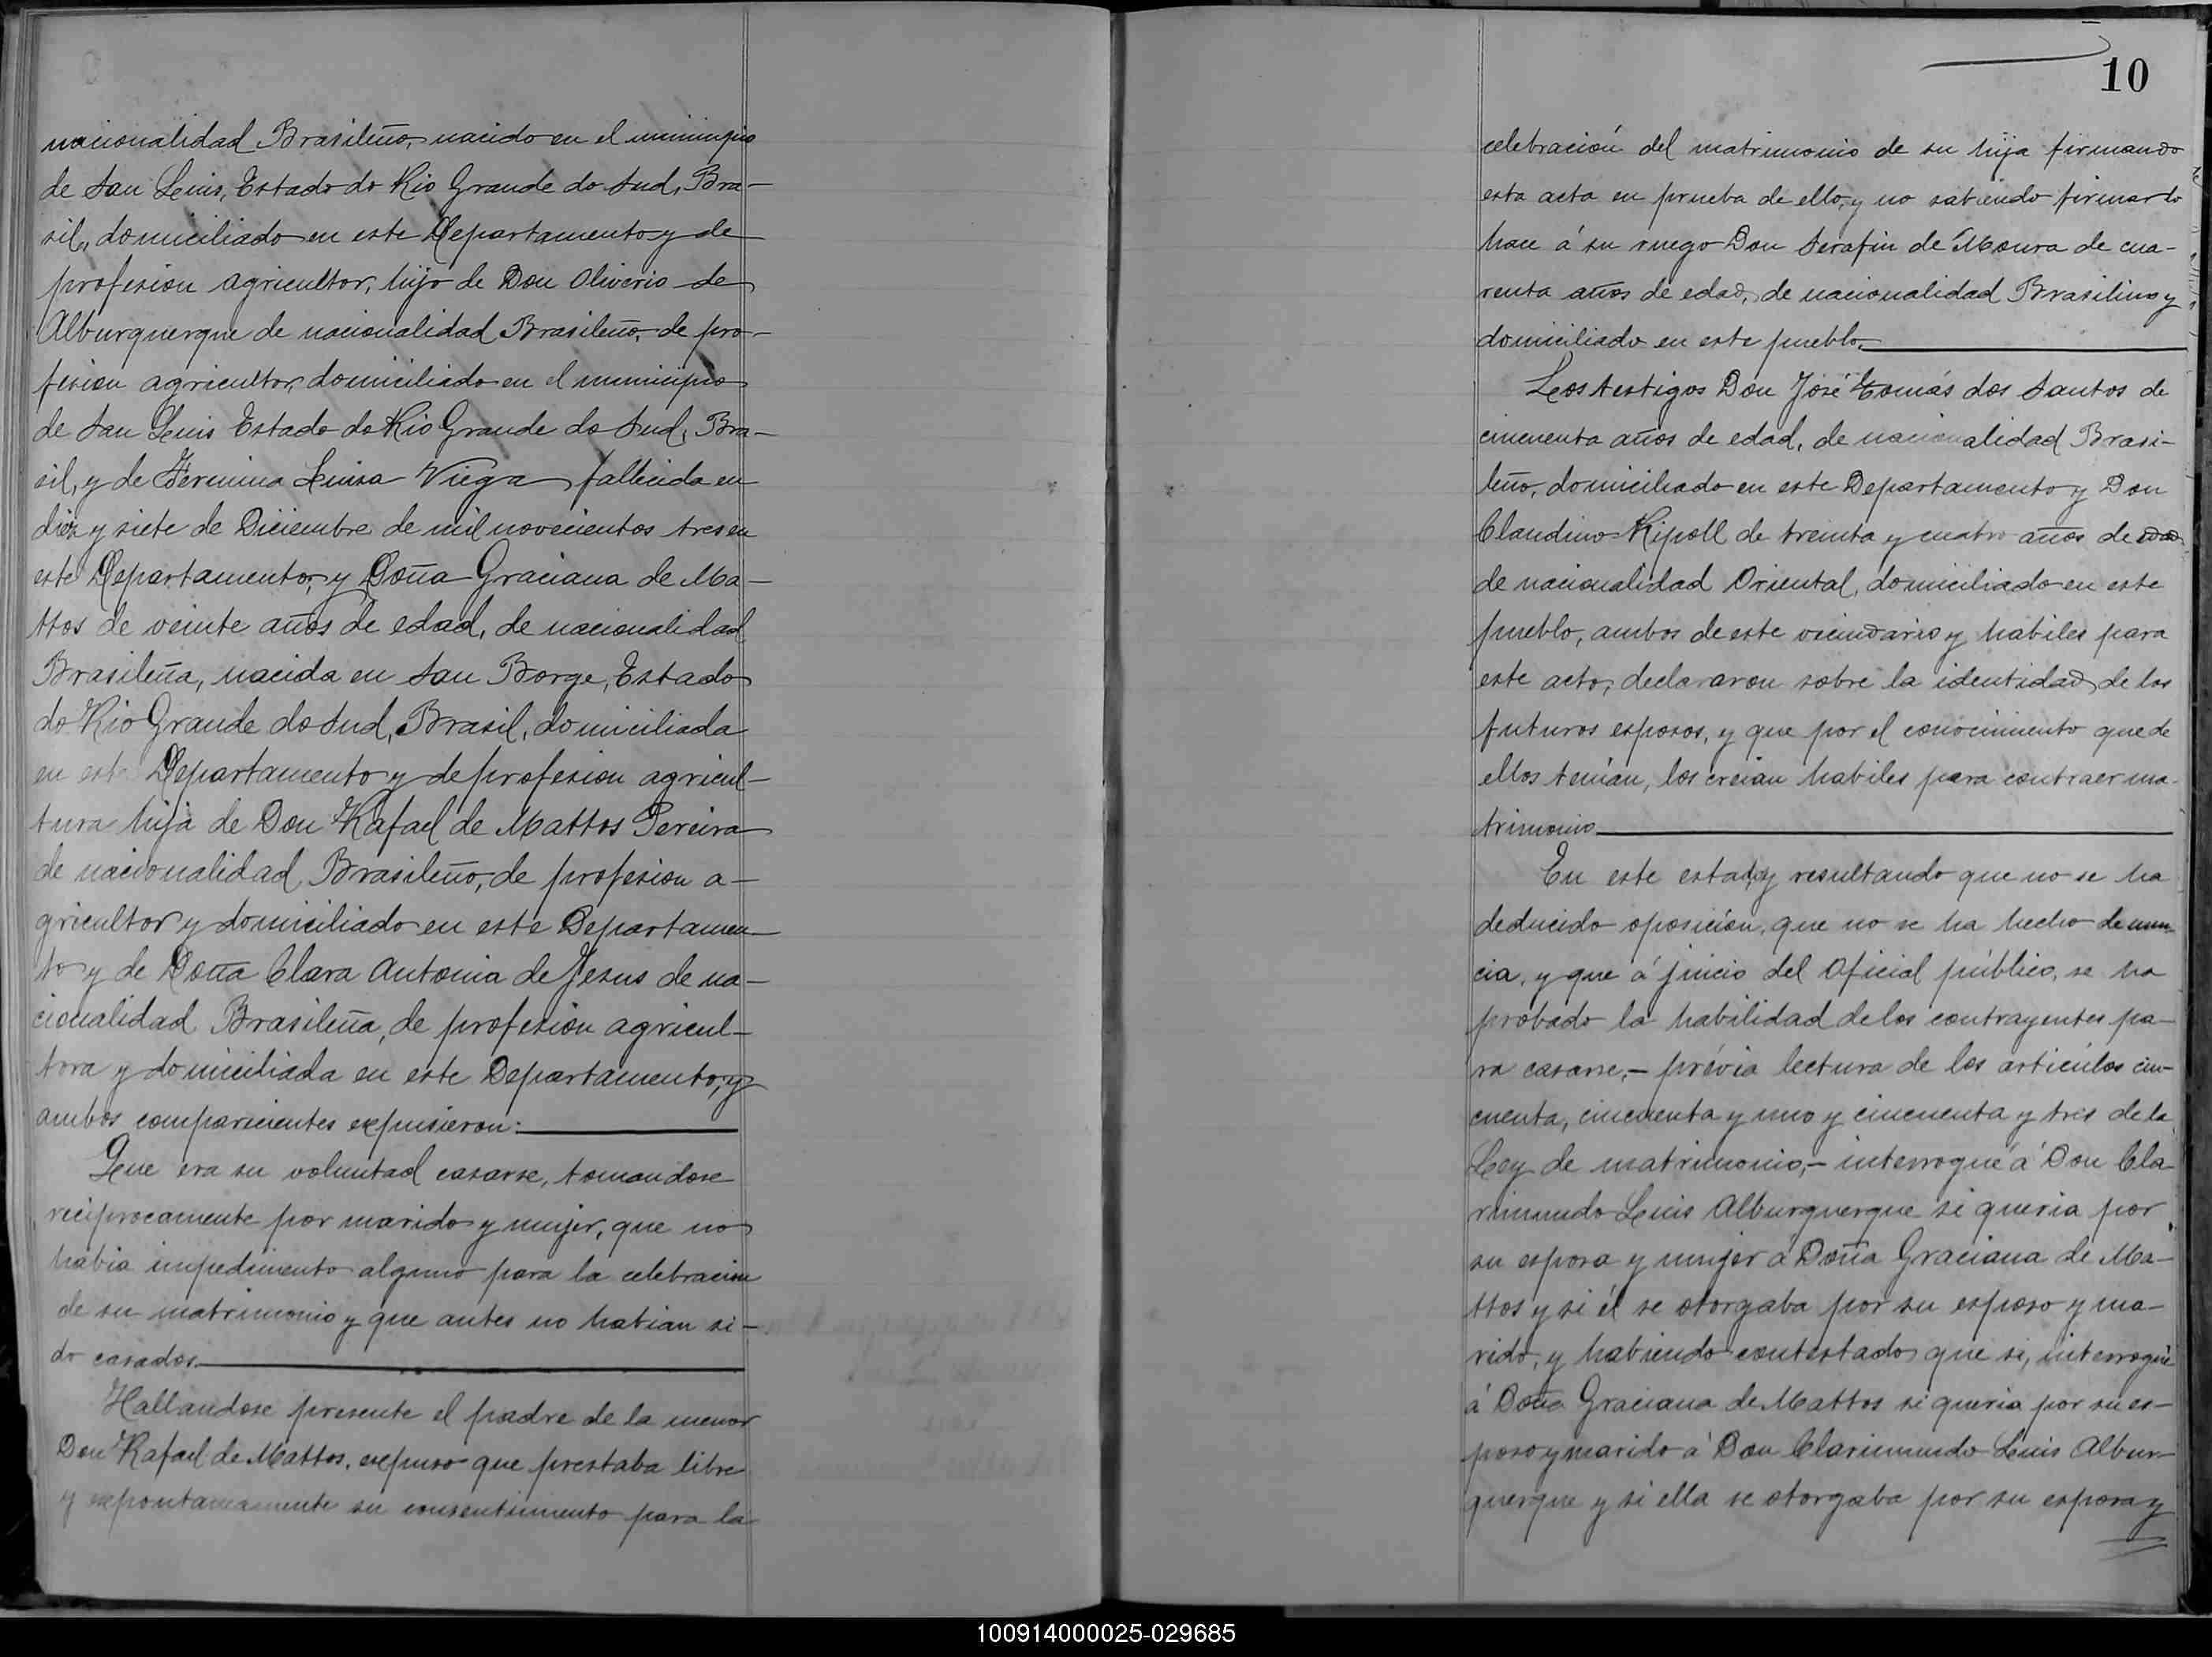 nacionalidad Brasileño, nacido en el municipio
de San Luis, Estado do Rio Grande do Sud, Bra-
sil, domiciliado en este Departamento y de
profesion agricultor, hijo de Don Oliverio de
Alburquerque de nacionalidad Brasileño, de pro-
fesion agricultor, domiciliado en el municipio
de San Luis Estado do Rio Grande do Sud, Bra-
sil, y de Fermina Luisa Viega fallecida en
diez y siete de Diciembre de mil novecientos tres en
este Departamento, y Doña Graciana de Ma-
ttos de veinte años de edad, de nacionalidad
Brasileña, nacida en San Borge, Estado
do Rio Grande do Sud, Brasil, domiciliada
en este Departamento y de profesion agricul-
tura hija de Don Rafael de Mattos Pereira
de nacionalidad Brasileño, de profesion a-
gricultor y domiciliado en este Departamen-
to y de Doña Clara Antonia de Jesus de na-
cionalidad Brasileña, de profesion agricul-
tora y domiciliada en este Departamento, y
ambos comparecientes expusieron:
Que era su voluntad casarse, tomandose
reciprocamente por marido y mujer, que no
habia impedimento alguno para la celebracion
de su matrimonio y que antes no habian si-
do casados.
Hallandose presente el padre de la menor
Don Rafael de Mattos, expuso que prestaba libre
y expontaneamente su consentimiento para la
10
celebración del matrimonio de su hija firmando
esta acta en prueba de ello, y no sabiendo firmar lo
hace á su ruego Don Serafin de Moura de cua-
renta años de edad, de nacionalidad Brasilino y
domiciliado en este pueblo.
Los testigos Don José Tomás dos Santos de
cincuenta años de edad, de nacionalidad Brasi-
leño, domiciliado en este Departamento y Don
Claudino Ripoll de treinta y cuatro años de edad
de nacionalidad Oriental, domiciliado en este
pueblo, ambos de este vecindario y habiles para
este acto, declararon sobre la identidad de los
futuros esposos, y que por el conocimiento que de
ellos tenian, los creian habiles para contraer ma-
trimonio
En este estado y resultando que no se ha
deducido oposicion, que no se ha hecho denun-
cia, y que á juicio del Oficial público, se ha
probado la habilidad de los contrayentes pa-
ra casarse,- prévia lectura de los articúlos cin-
cuenta, cincuenta y uno y cincuenta y tres de la
Ley de matrimonio,- interrogué á Don Cla-
rimundo Luis Alburquerque si queria por
su esposa y mujer á Doña Graciana de Ma-
ttos y si él se otorgaba por su esposo y ma-
rido, y habiendo contestado que si, interrogué
á Doña Graciana de Mattos si queria por su es-
poso y marido á Don Clarimundo Luis Albur-
querque y si ella se otorgaba por su esposa y
100914000025-029685